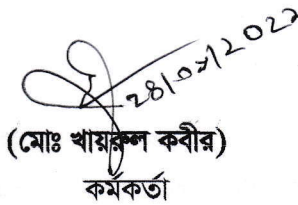 28/07/2022
(মোঃ খায়রুল কবীর)
কর্মকর্তা